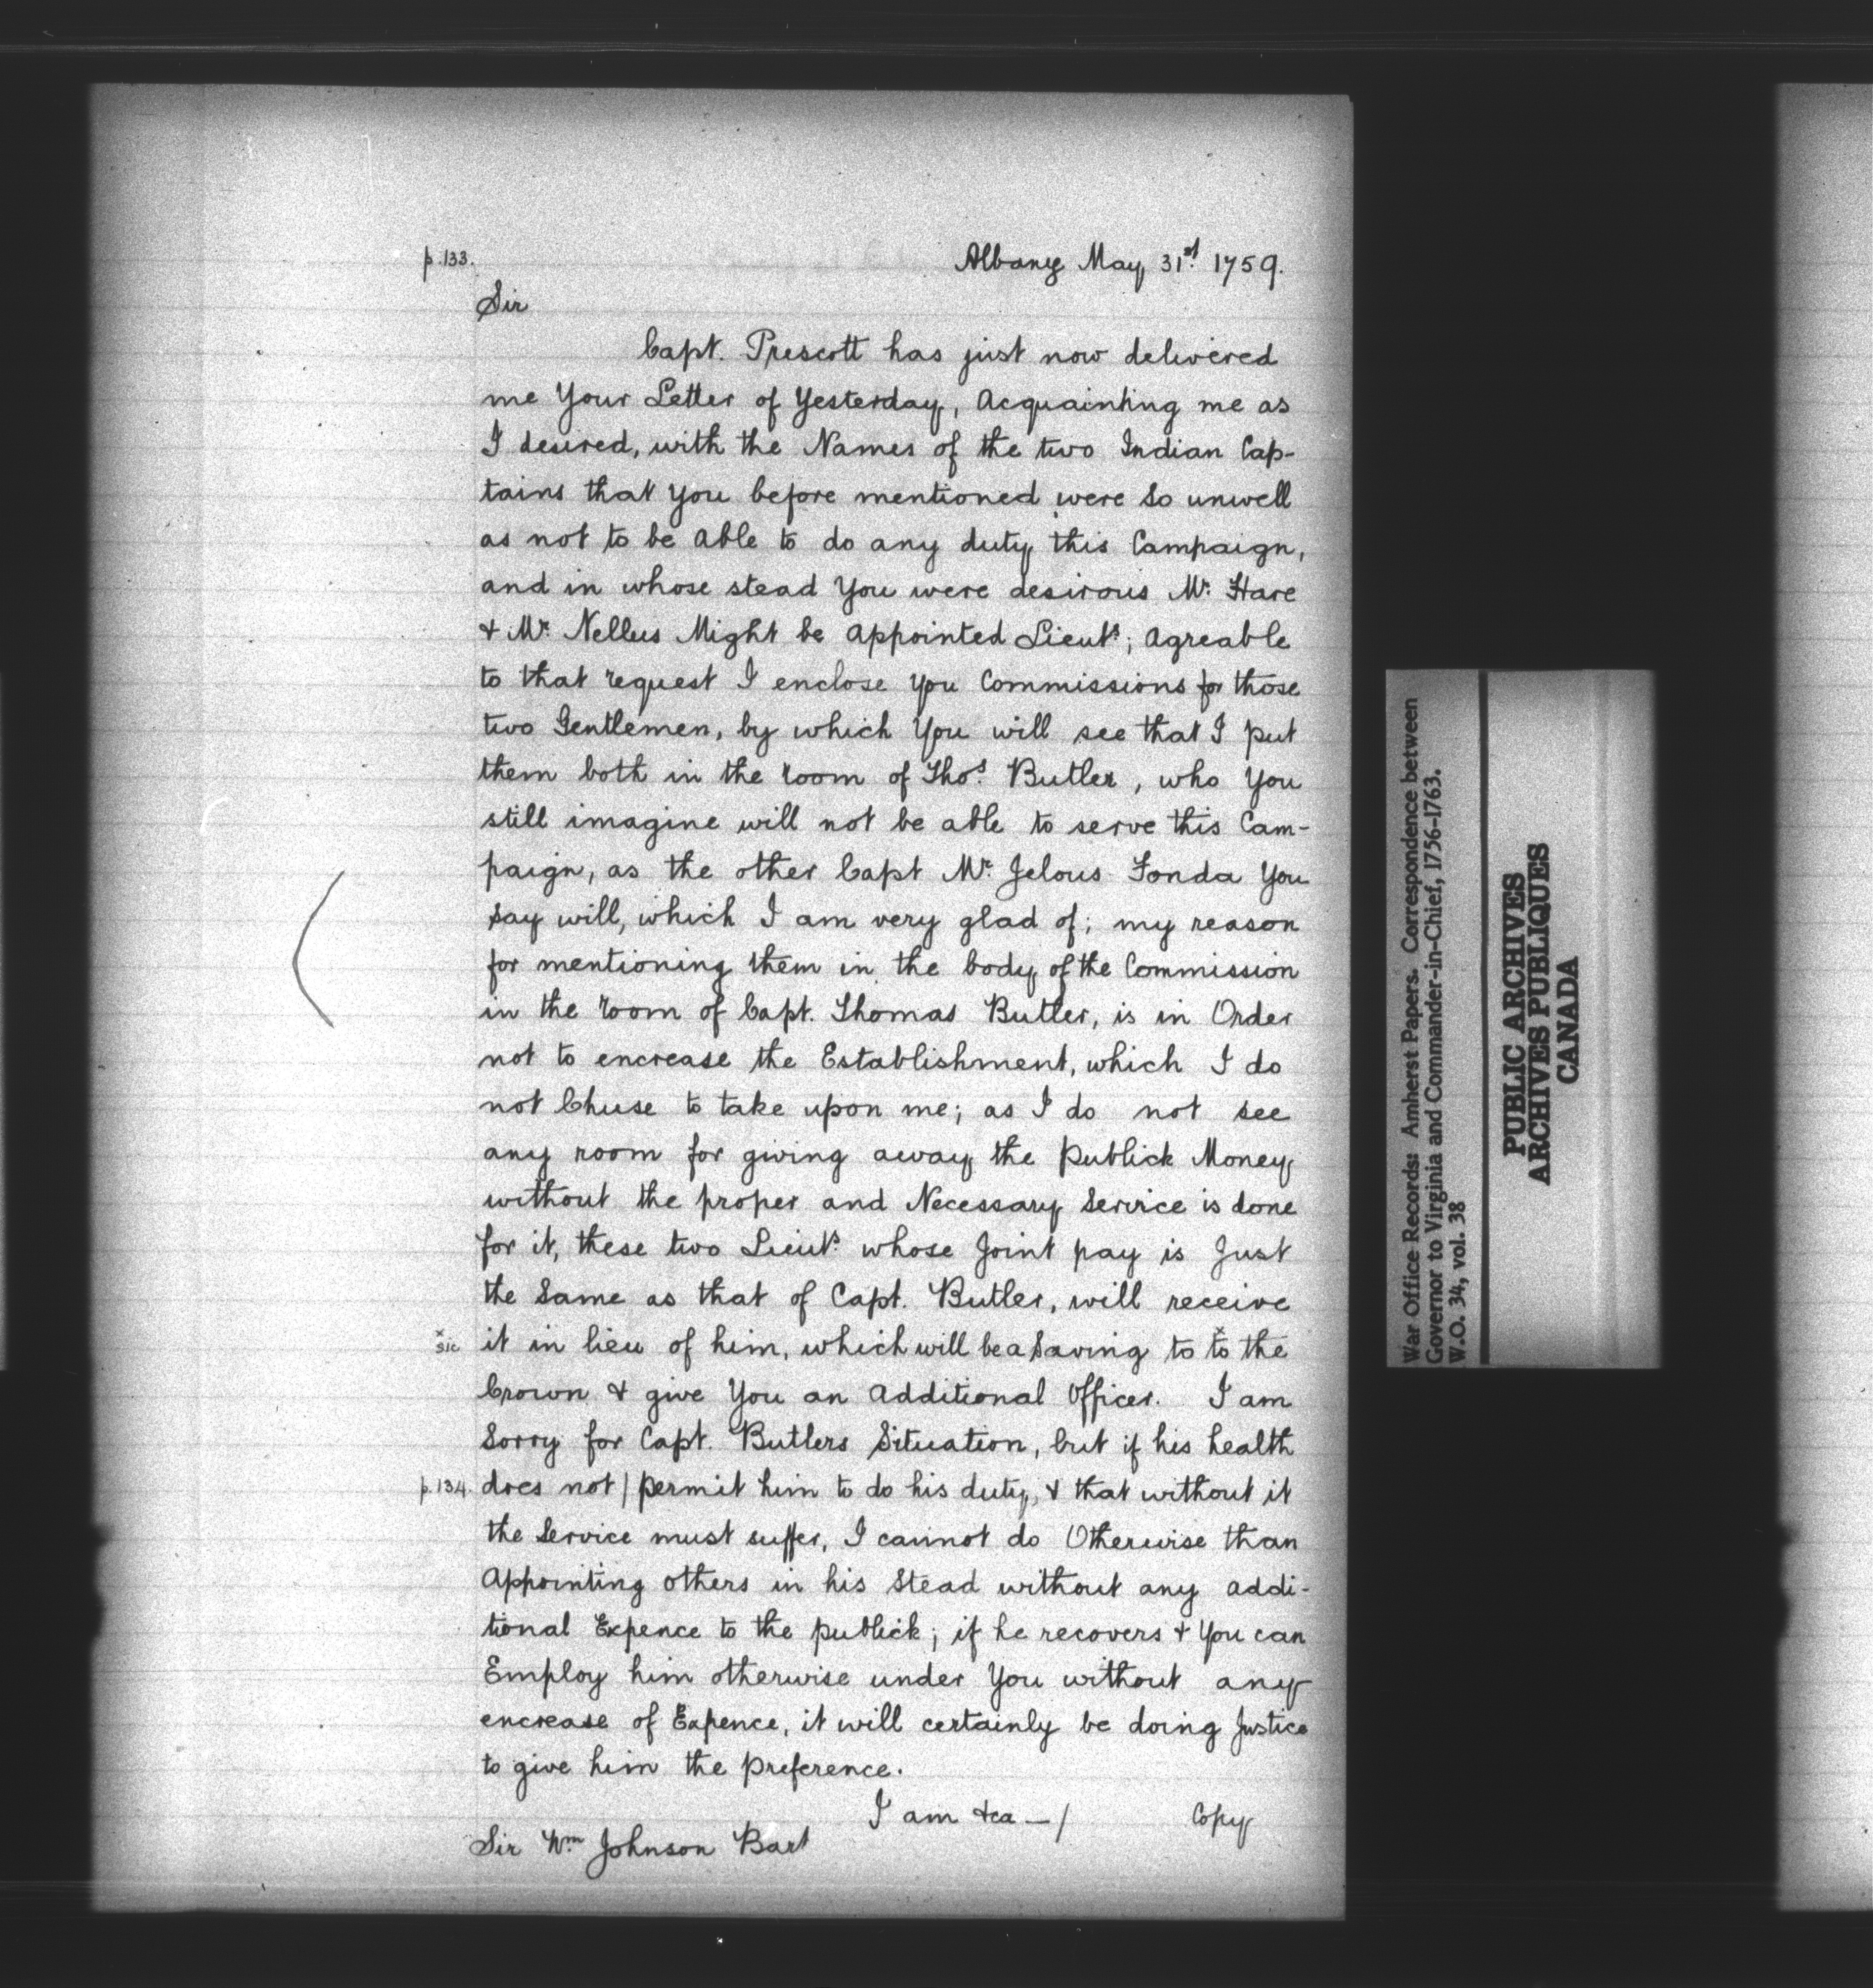 p.133.
Albany May 31st. 1759.
Sir
Capt. Prescott has just now delivered
me Your Letter of Yesterday, Acquainting me as
I desired, with the Names of the two Indian Cap-
tains that You before mentioned were so unwell
as not to be Able to do any duty this Campaign,
and in whose stead You were desirous Mr. Hare
& Mr. Nellus Might be Appointed Lieuts; Agreable
to that request I enclose you Commissions for those
two Gentlemen, by which You will see that I put
them both in the room of Thos. Butler, who You
still imagine will not be able to serve this Cam-
paign, as the other Capt Mr. Jelous Fonda You
say will, which I am very glad of; my reason
for mentioning them in the body of the Commission
in the room of Capt. Thomas Butler, is in Order
not to encrease the Establishment, which I do
not Chuse to take upon me; as I do not see
any room for giving away the Publick Money
without the proper and Necessary Service is done
for it, these two Lieuts. whose Joint pay is Just
the Same as that of Capt. Butler, will receive
x sic it in lieu of him, which will be a Saving to xto the
Crown & give You an Additional Officer. I am
Sorry for Capt. Butlers Situation, but if his health
p.134. does not | permit him to do his duty, & that without it
the Service must suffer, I cannot do Otherwise than
Appointing others in his Stead without any addi-
tional Expence to the publick; if he recovers & You can
Employ him otherwise under You without any
encrease of Expence, it will certainly be doing Justice
to give him the Preference.
I am &ca — /
Copy
Sir Wm Johnson Bart
War Office Records: Amherst Papers. Correspondence between
Governor to Virginia and Commander-in-Chief, 1756-1763.
W.O. 34, vol. 38
PUBLIC ARCHIVES
ARCHIVES PUBLIQUES
CANADA